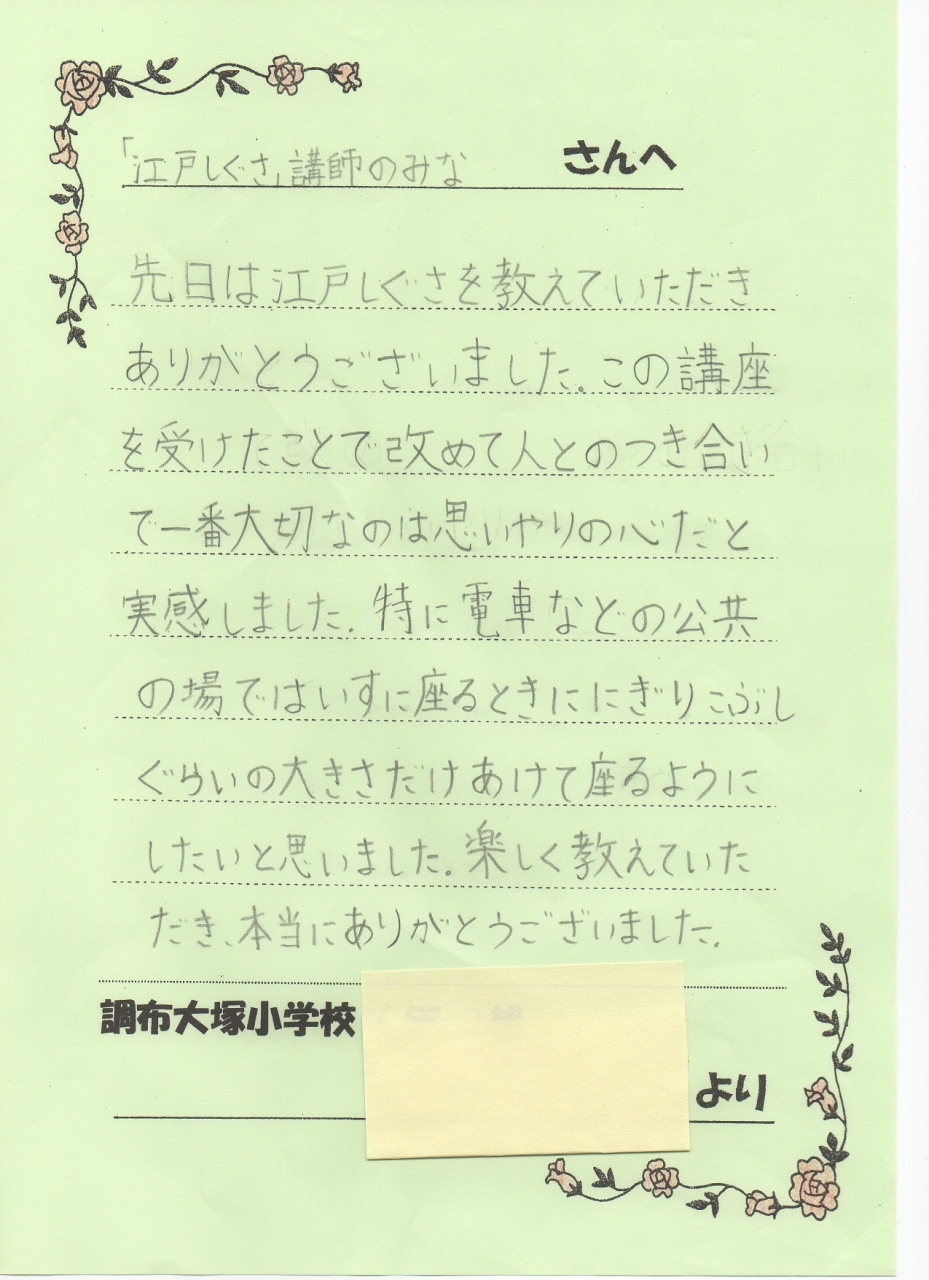 「江戸しぐさ」講師のみな さんへ
先日は江戸しぐさを教えていただき
ありがとうございました。この講座
を受けたことで改めて人とのつき合い
で一番大切なのは思いやりの心だと
実感しました。特に電車などの公共
の場ではいすに座るときににぎりこぶし
ぐらいの大きさだけあけて座るように
したいと思いました。楽しく教えていた
だき、本当にありがとうございました。
調布大塚小学校
より